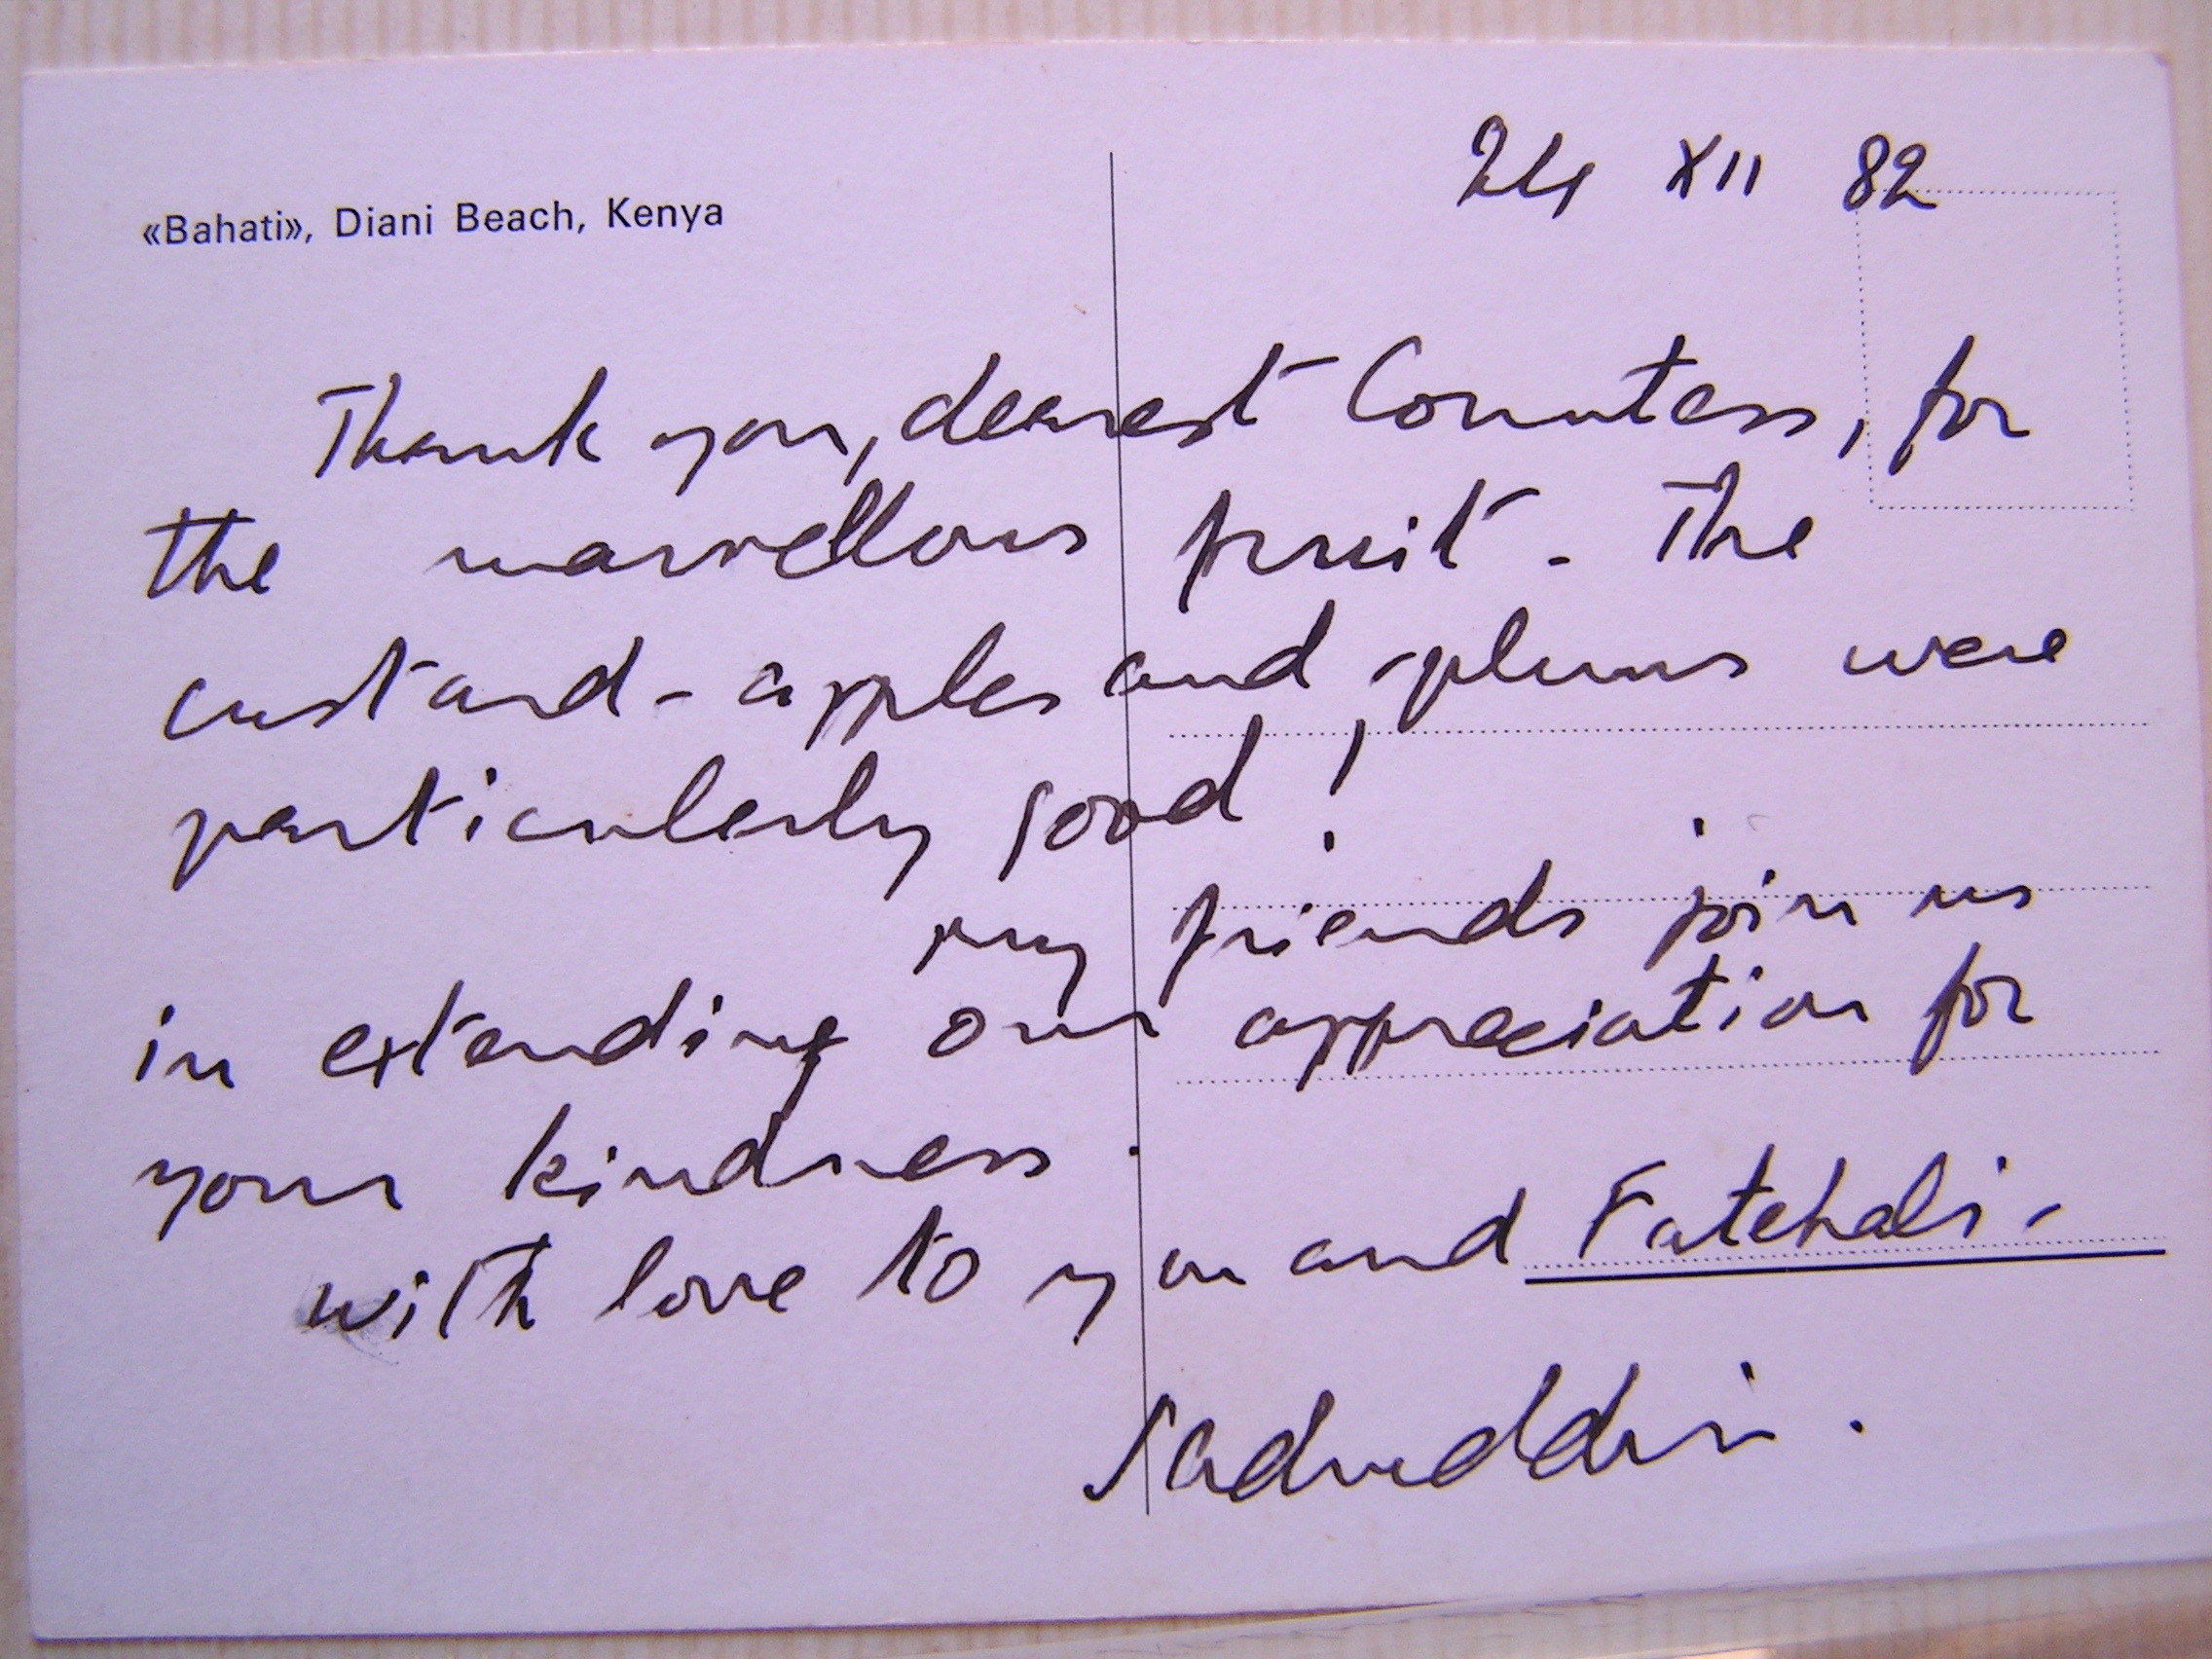 «Bahati», Diani Beach, Kenya
24 XII 82
Thank you, dearest Countess, for
the marvellous fruit. The
custard-apples and plums were
particularly good!
my friends join us
in extending our appreciation for
your kindness.
with love to you and Fatehali.
Sadruddin.